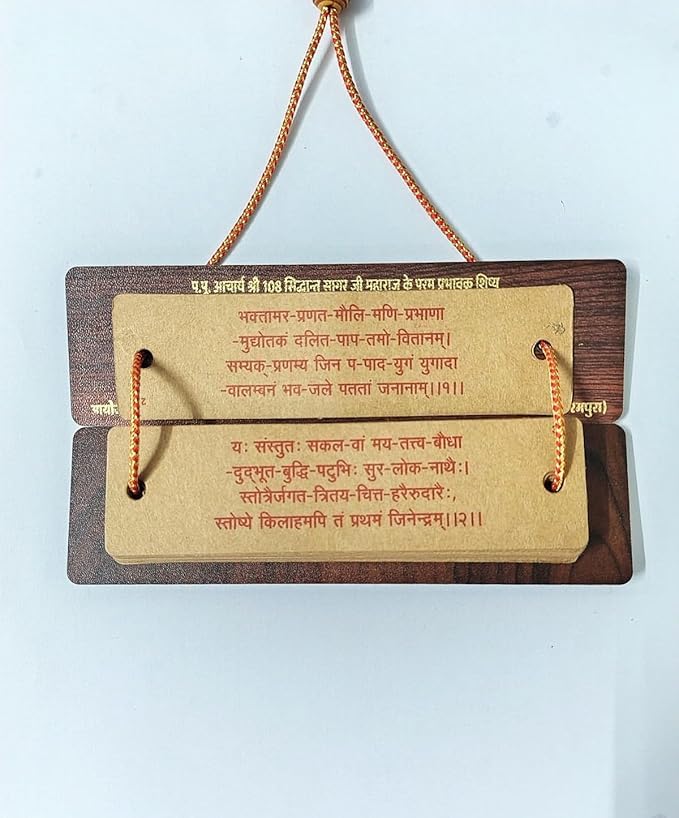 प.पू. आचार्य श्री 108 सिद्धान्त सागर जी महाराज के परम प्रभावक शिष्य
भक्तामर-प्रणत-मौलि-मणि-प्रभाणा
-मुद्योतकं दलित-पाप-तमो-वितानम्।
सम्यक-प्रणम्य जिन प-पाद-युगं युगादा
-वालम्बनं भव-जले पततां जनानाम्।।१।।
यः संस्तुतः सकल-वां मय-तत्त्व-बौधा
-दुद्भूत-बुद्धि-पटुभिः सुर-लोक-नाथैः।
स्तोत्रैर्जगत-त्रितय-चित्त-हरैरुदारैः,
स्तोष्ये किलाहमपि तं प्रथमं जिनेन्द्रम्।।२।।